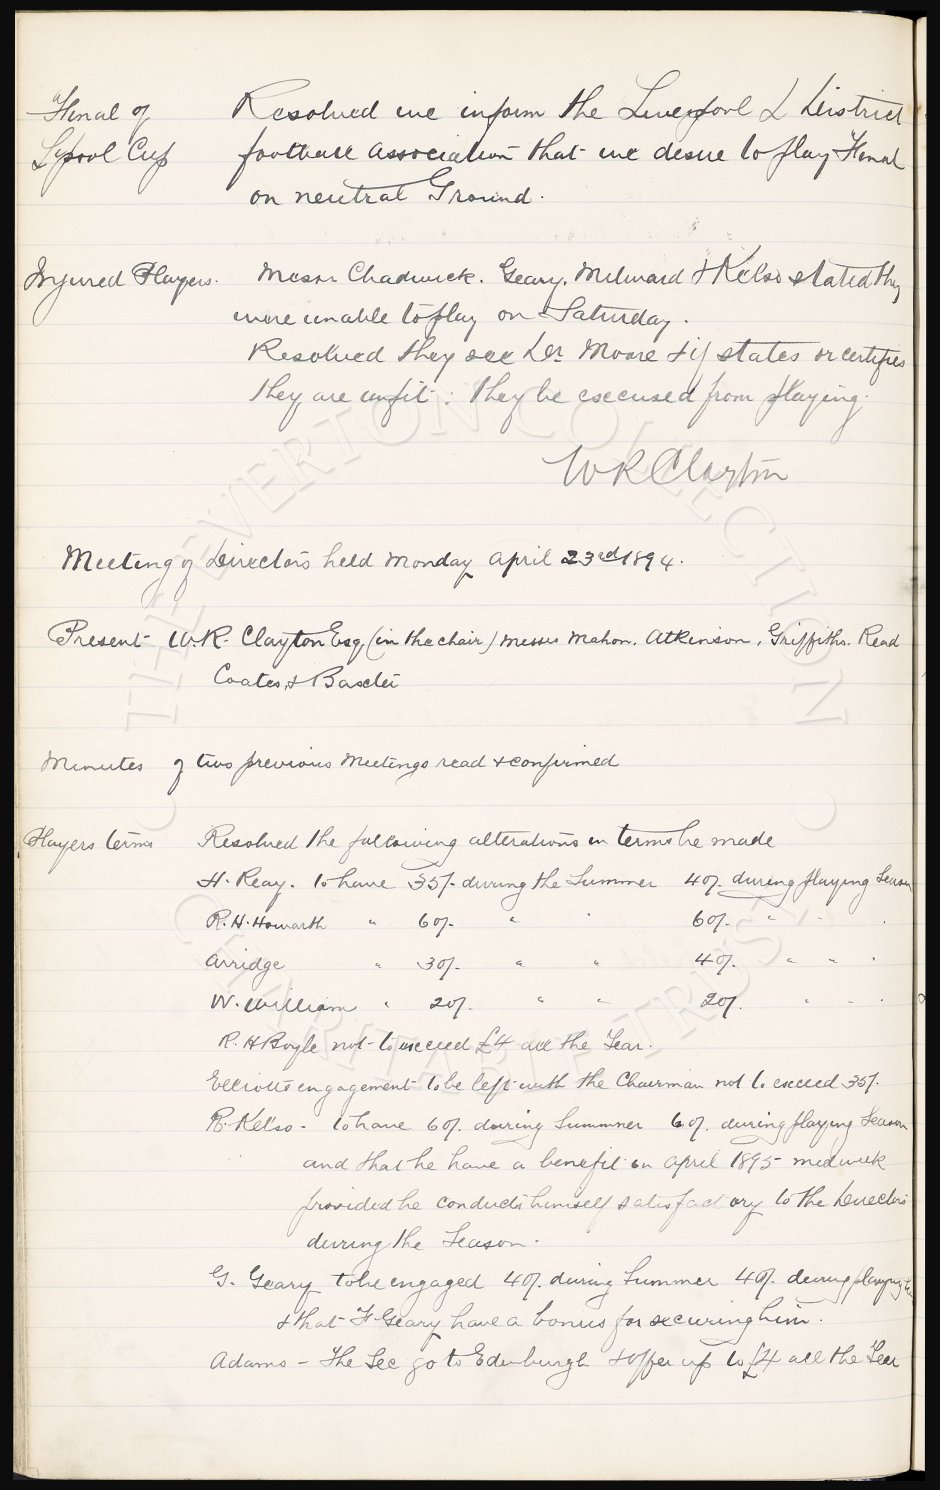 Final of Resolved we inform the Liverpool & District
L'pool Cup football association that we desire to play Final
on neutral Ground.
Injured Players. Messrs Chadwick. Geary. Milward & Kelso stated they
were unable to play on Saturday.
Resolved they see Dr. Moore & if states or certifies
they are unfit: they be excused from playing.
WR Clayton
Meeting of Directors held Monday april 23rd 1894.
Present W.R. Clayton Esq (in the chair) Messrs Mahon. Atkinson. Griffiths. Read
Coates, & Baxter
Minutes of two previous Meetings read & confirmed
Players terms Resolved the following alterations in terms be made
H. Reay. to have 35/- during the Summer 40/- during playing Season
R.H. Howarth " 60/- " " 60/- " " "
Arridge " 30/- " " 40/- " " "
W. William " 20/- " " 20/- " " "
R.H Boyle not to exceed £4 all the Year.
Elliotts engagement to be left with the Chairman not to exceed 35/-
R. Kelso - to have 60/- during Summer 60/- during playing Season
and that he have a benefit in april 1895 midweek
provided he conducts himself satisfactory to the Directors
during the Season.
G. Geary to be engaged 40/- during Summer 40/- during playing
& that F Geary have a bonus for securing him.
Adams - The Sec go to Edinburgh & offer up to £4 all the Year
THE EVERTON COLLECTION
CHARITABLE TRUST